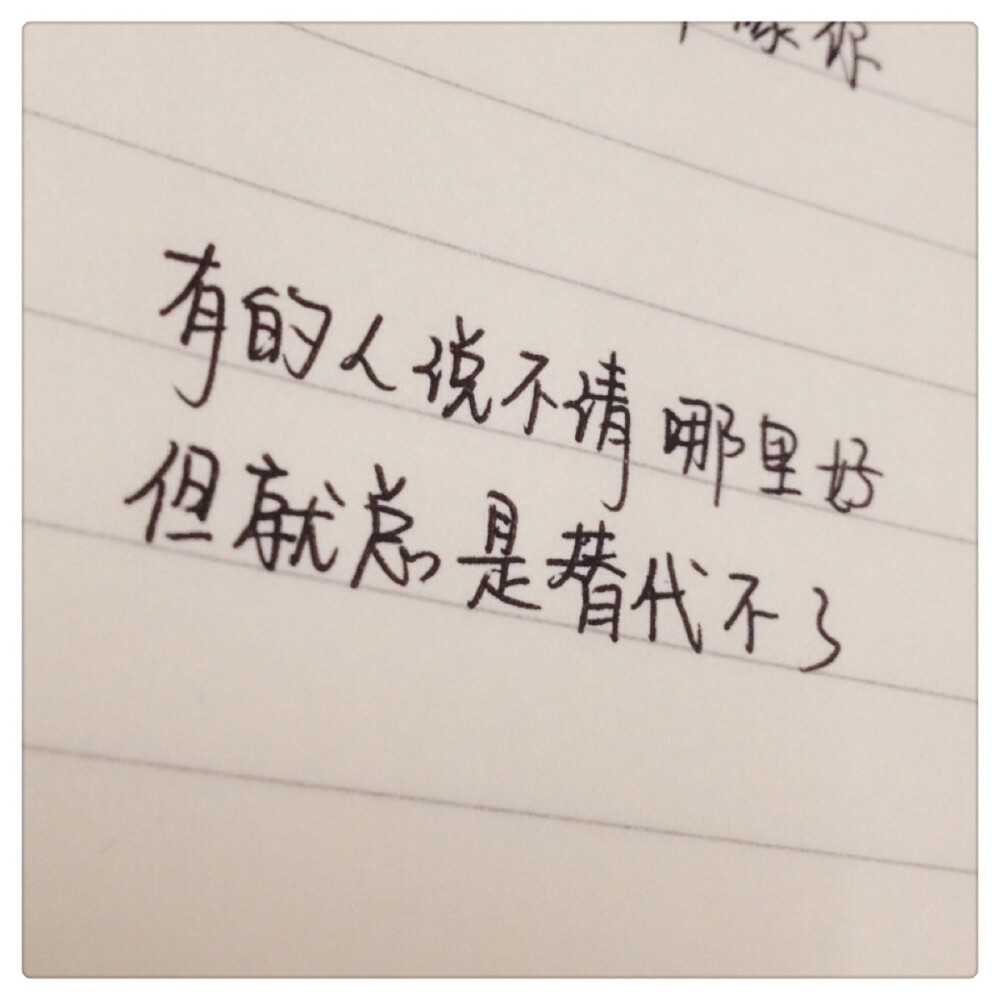 像你
有的人说不清哪里好
但就总是替代不了